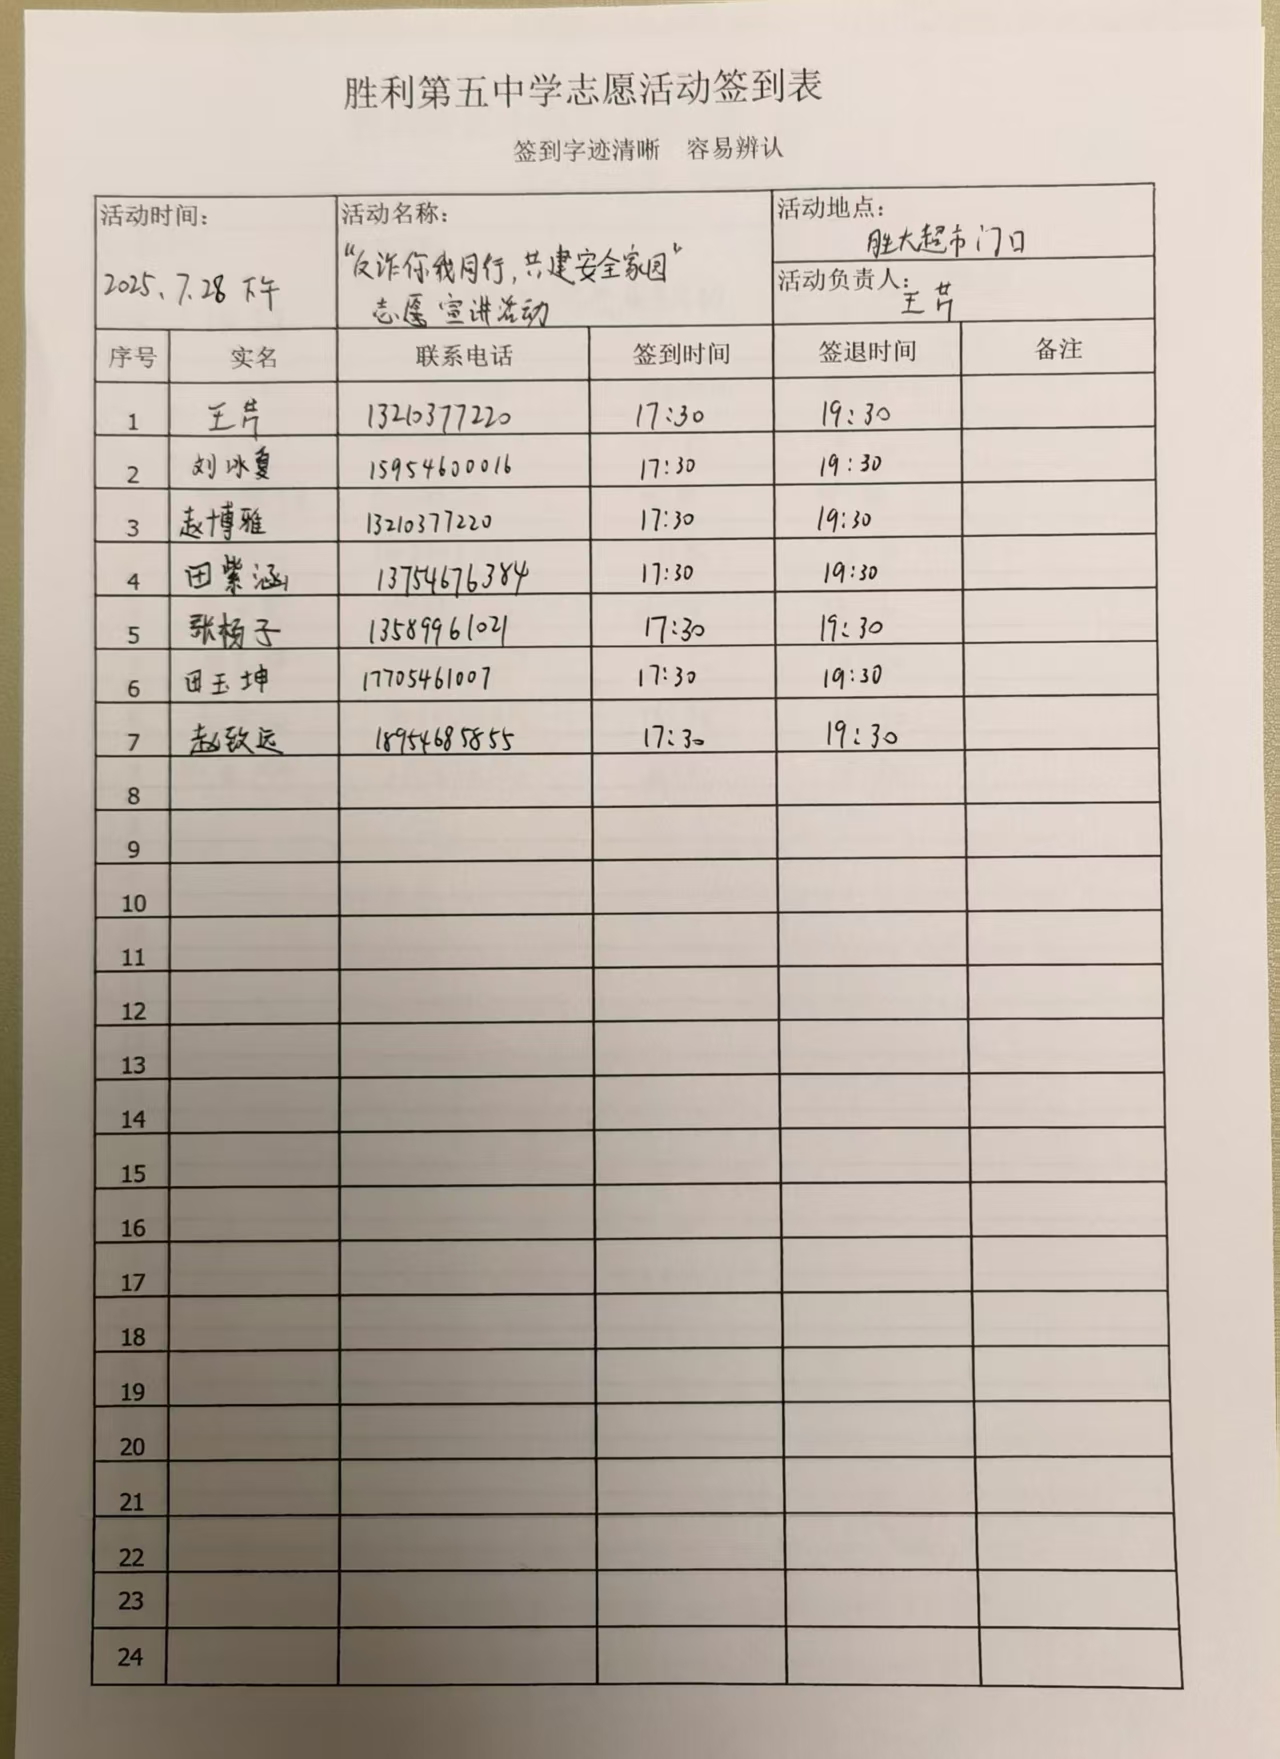 胜利第五中学志愿活动签到表
签到字迹清晰 容易辨认
活动时间: 2025.7.28 下午
活动名称:
“反诈你我同行,共建安全家园”
志愿宣讲活动
活动地点: 胜大超市门口
活动负责人: 王芹
序号 实名 联系电话 签到时间 签退时间 备注
1 王芹 13210377220 17:30 19:30
2 刘冰夏 15954600016 17:30 19:30
3 赵博雅 13210377220 17:30 19:30
4 田紫涵 13754676384 17:30 19:30
5 张杨子 13589961021 17:30 19:30
6 田玉坤 17705461007 17:30 19:30
7 赵致远 18954685855 17:30 19:30
8
9
10
11
12
13
14
15
16
17
18
19
20
21
22
23
24